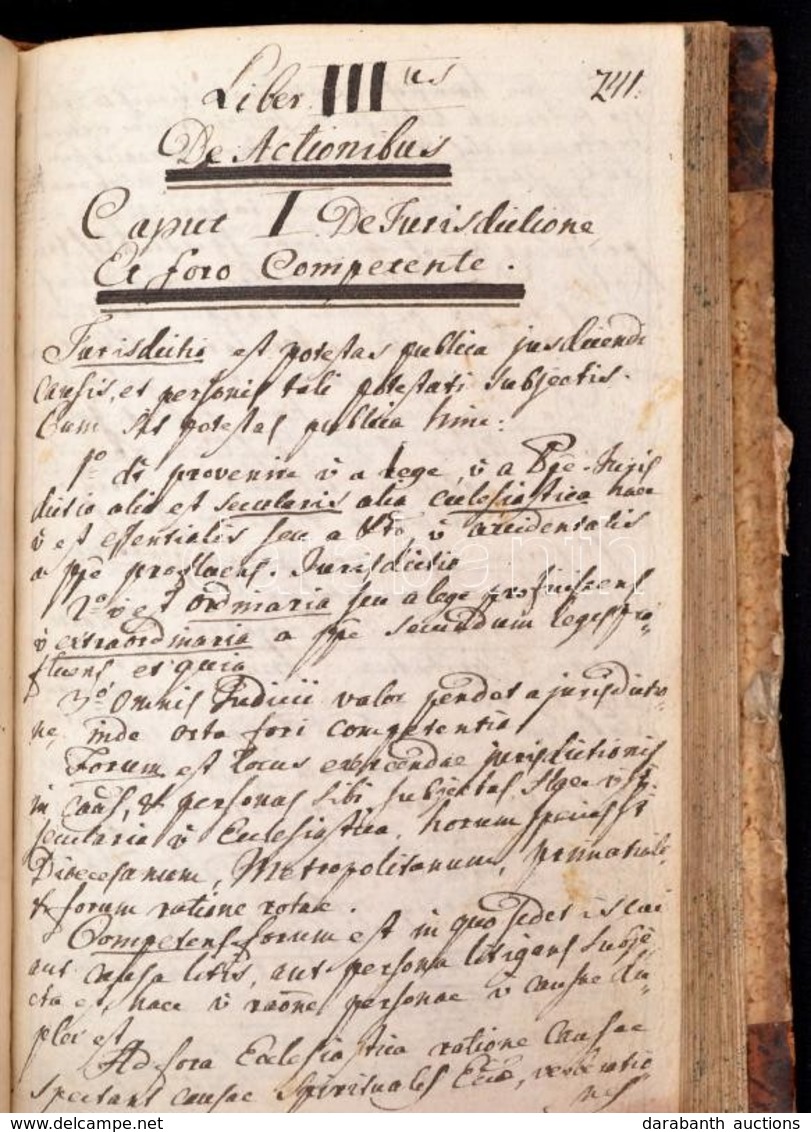 Liber III us
241.
De Actionibus
Caput I De Jurisdictione
Et foro Competente.
Jurisdictio est potestas publica jus dicendi
causis, et personis tali potestati subjectis.
Cum sit potestas publica hinc:
1o dt provenire v a lege, v a Ppe. Juris
dictio alia est secularis alia Ecclesiastica haec
v est essentialis seu a v accidentalis
a ppe profluens. Jurisdictio
2o v est ordinaria seu a lege profluens
v extraordinaria a ppe secundum leges pro-
fluens et quia
3o Omnis Judicii valor pendet a jurisdictio-
ne, inde orta fori competentia
Forum est locus exercendae jurisdictionis
in caus, & personas sibi subjectas
secularia v Ecclesiastica, horum
Dioecesanum, Metropolitanum, primatiale,
& forum ratione rotae.
Competens forum est in quo sedet is cui
aut causa litis, aut persona litigans subje-
cta est, haec v raone personae v causae du-
plex est
Ad fora Ecclesiastica ratione causae
spectant causae spirituales
nes
darabanth
darabanth auctions